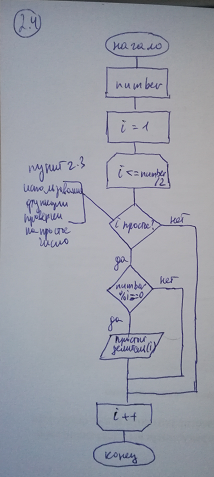 2.4
начало
number
i = 1
i <= number
/2
пункт 2.3
использование
функции
проверки
на простое
число
i простое?
нет
да
number
%i==0
нет
да
простой
делитель(i)
i++
конец